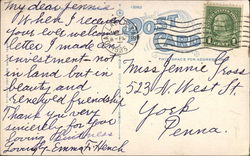 My dear Jennie
When I received
your ever welcome
letter I made an
investment - not
in land but in
beauty and
renewed friendship
Thank you very
sincerely for your
loving kindness
Lovingly Emma F. Hench
POST
Miss Jennie Gross
523 W. West St.
York
Penna.